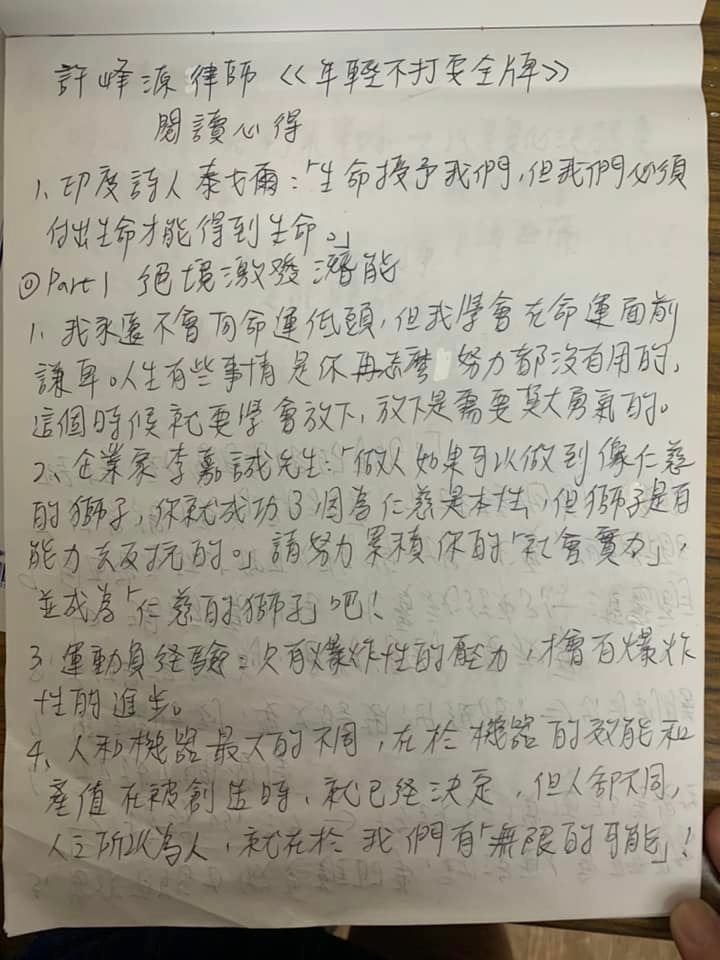 許峰源律師《年輕不打安全牌》
閱讀心得
1、印度詩人泰戈爾:「生命授予我們,但我們必須
付出生命才能得到生命。」
◎Part1 絕境激發潛能
1、我永遠不會向命運低頭,但我學會在命運面前
謙卑。人生有些事情是你再怎麼努力都沒有用的,
這個時候就要學會放下,放下是需要莫大勇氣的。
2、企業家李嘉誠先生:「做人如果可以做到像仁慈
的獅子,你就成功了因為仁慈是本性,但獅子是有
能力去反抗的。」請努力累積你的「社會實力」,
並成為「仁慈的獅子」吧!
3、運動員経驗:只有爆炸性的壓力,才會有爆炸
性的進步。
4、人和機器最大的不同,在於機器的效能和
產值在被創造時、就已经決定,但人卻不同,
人之所以為人,就在於我們有「無限的可能」!